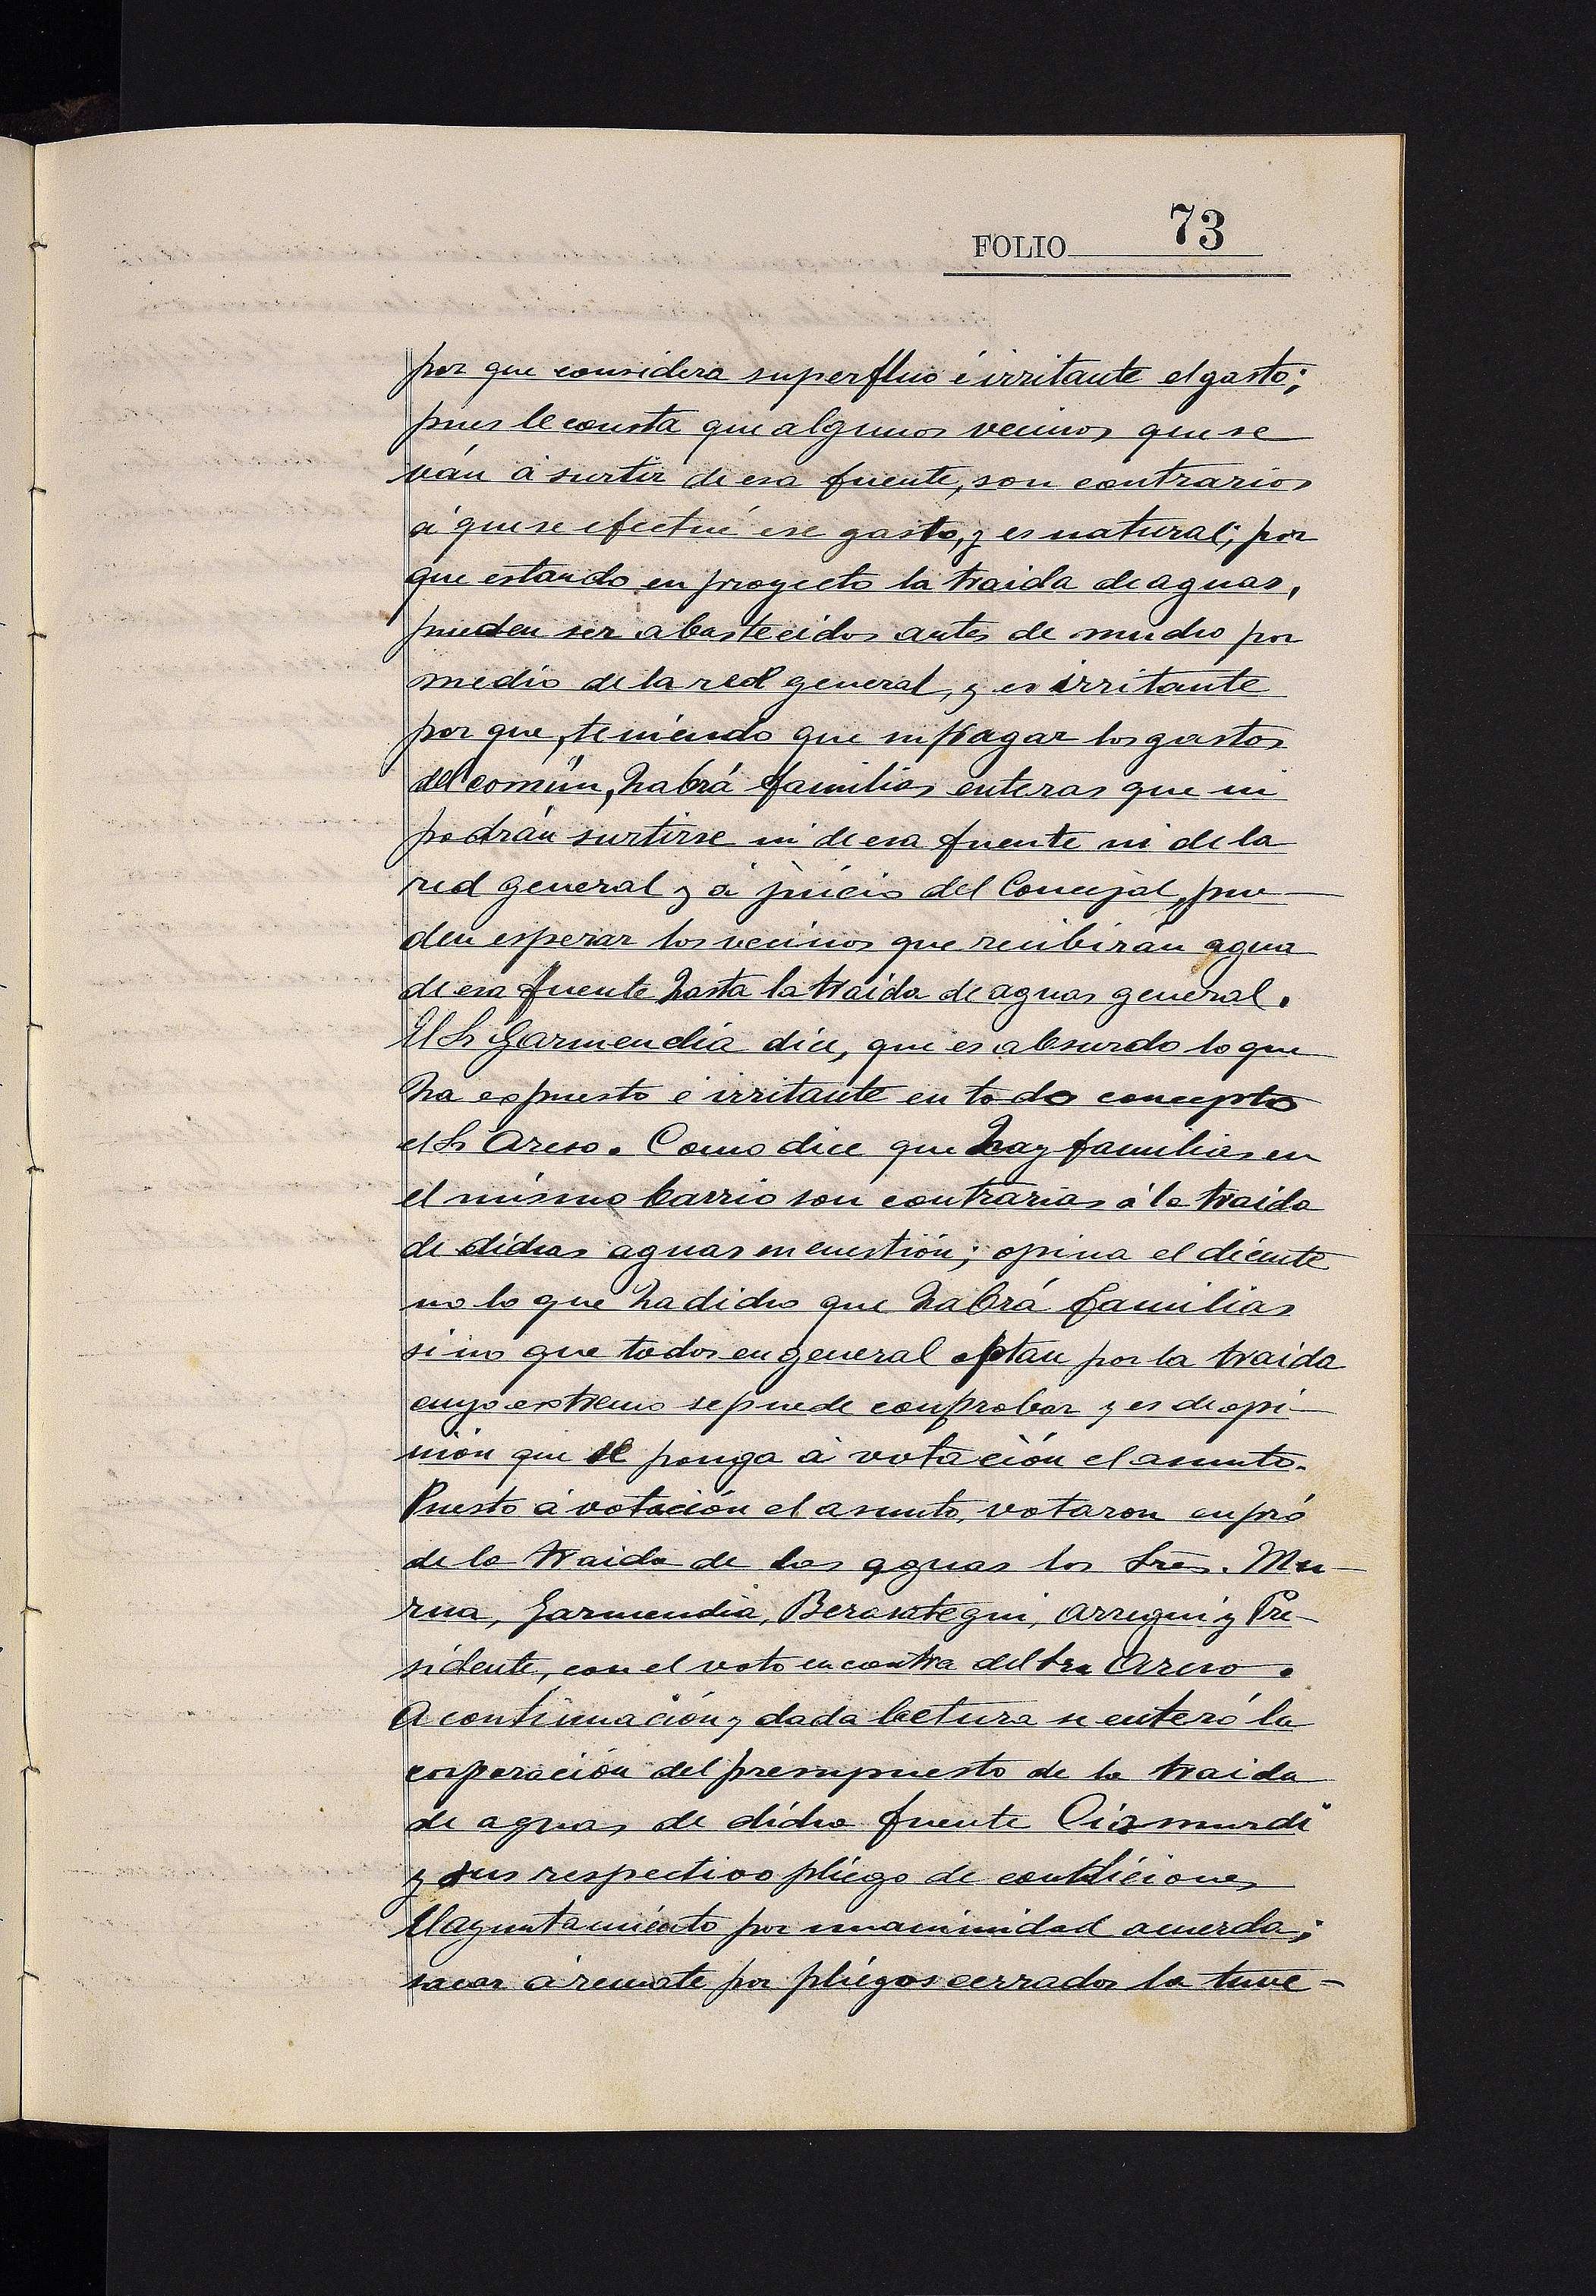 FOLIO 73
por que considera superfluo é irritante el gasto;
pues le consta que algunos vecinos que se
ván á surtir de esa fuente, son contrarios
á que se efectué ese gasto, y es natural; por
que estando en proyecto la traida de aguas,
pueden ser abastecidos antes de mucho por
medio de la red general, y es irritante
por que, teniendo que sufragar los gastos
del común, habrá familias enteras que ni
podrán surtirse ni de esa fuente ni de la
red general y á juicio del Concejal, pue-
den esperar los vecinos que recibirán agua
de esa fuente hasta la traida de aguas general.
El Sr Garmendia dice, que es absurdo lo que
ha espuesto é irritante en todo concepto
el Sr Areso. Como dice que hay familias en
el mismo barrio son contrarias á la traida
de dichas aguas en cuestión; opina el dicente
no lo que ha dicho que habrá familias
si no que todos en general optan por la traida
cuyo estremo se puede conprobar y es de opi-
nión que se ponga á votación el asunto.
Puesto á votación el asunto, votaron en pró
de la traida de las aguas los Sres. Mu-
rua, Garmendia, Berasategui, Arregui y Pre-
sidente, con el voto en contra del Sr Areso.
A continuación y dada lectura se enteró la
corporación del presupuesto de la traida
de aguas de dicha fuente Oiamurdi
y sus respectivo pliego de condiciones
El ayuntamiento por unanimidad acuerda;
sacar á remate por pliegos cerrados la tuve-